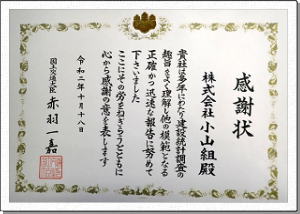 感謝状
株式会社 小山組殿
貴社は多年にわたり建設統計調査の
趣旨をよく理解し他の模範となる
正確かつ迅速な報告に努めて
下さいました
ここにその労をねぎらうとともに
心から感謝の意を表します
令和二年十月十八日
国土交通大臣 赤羽一嘉